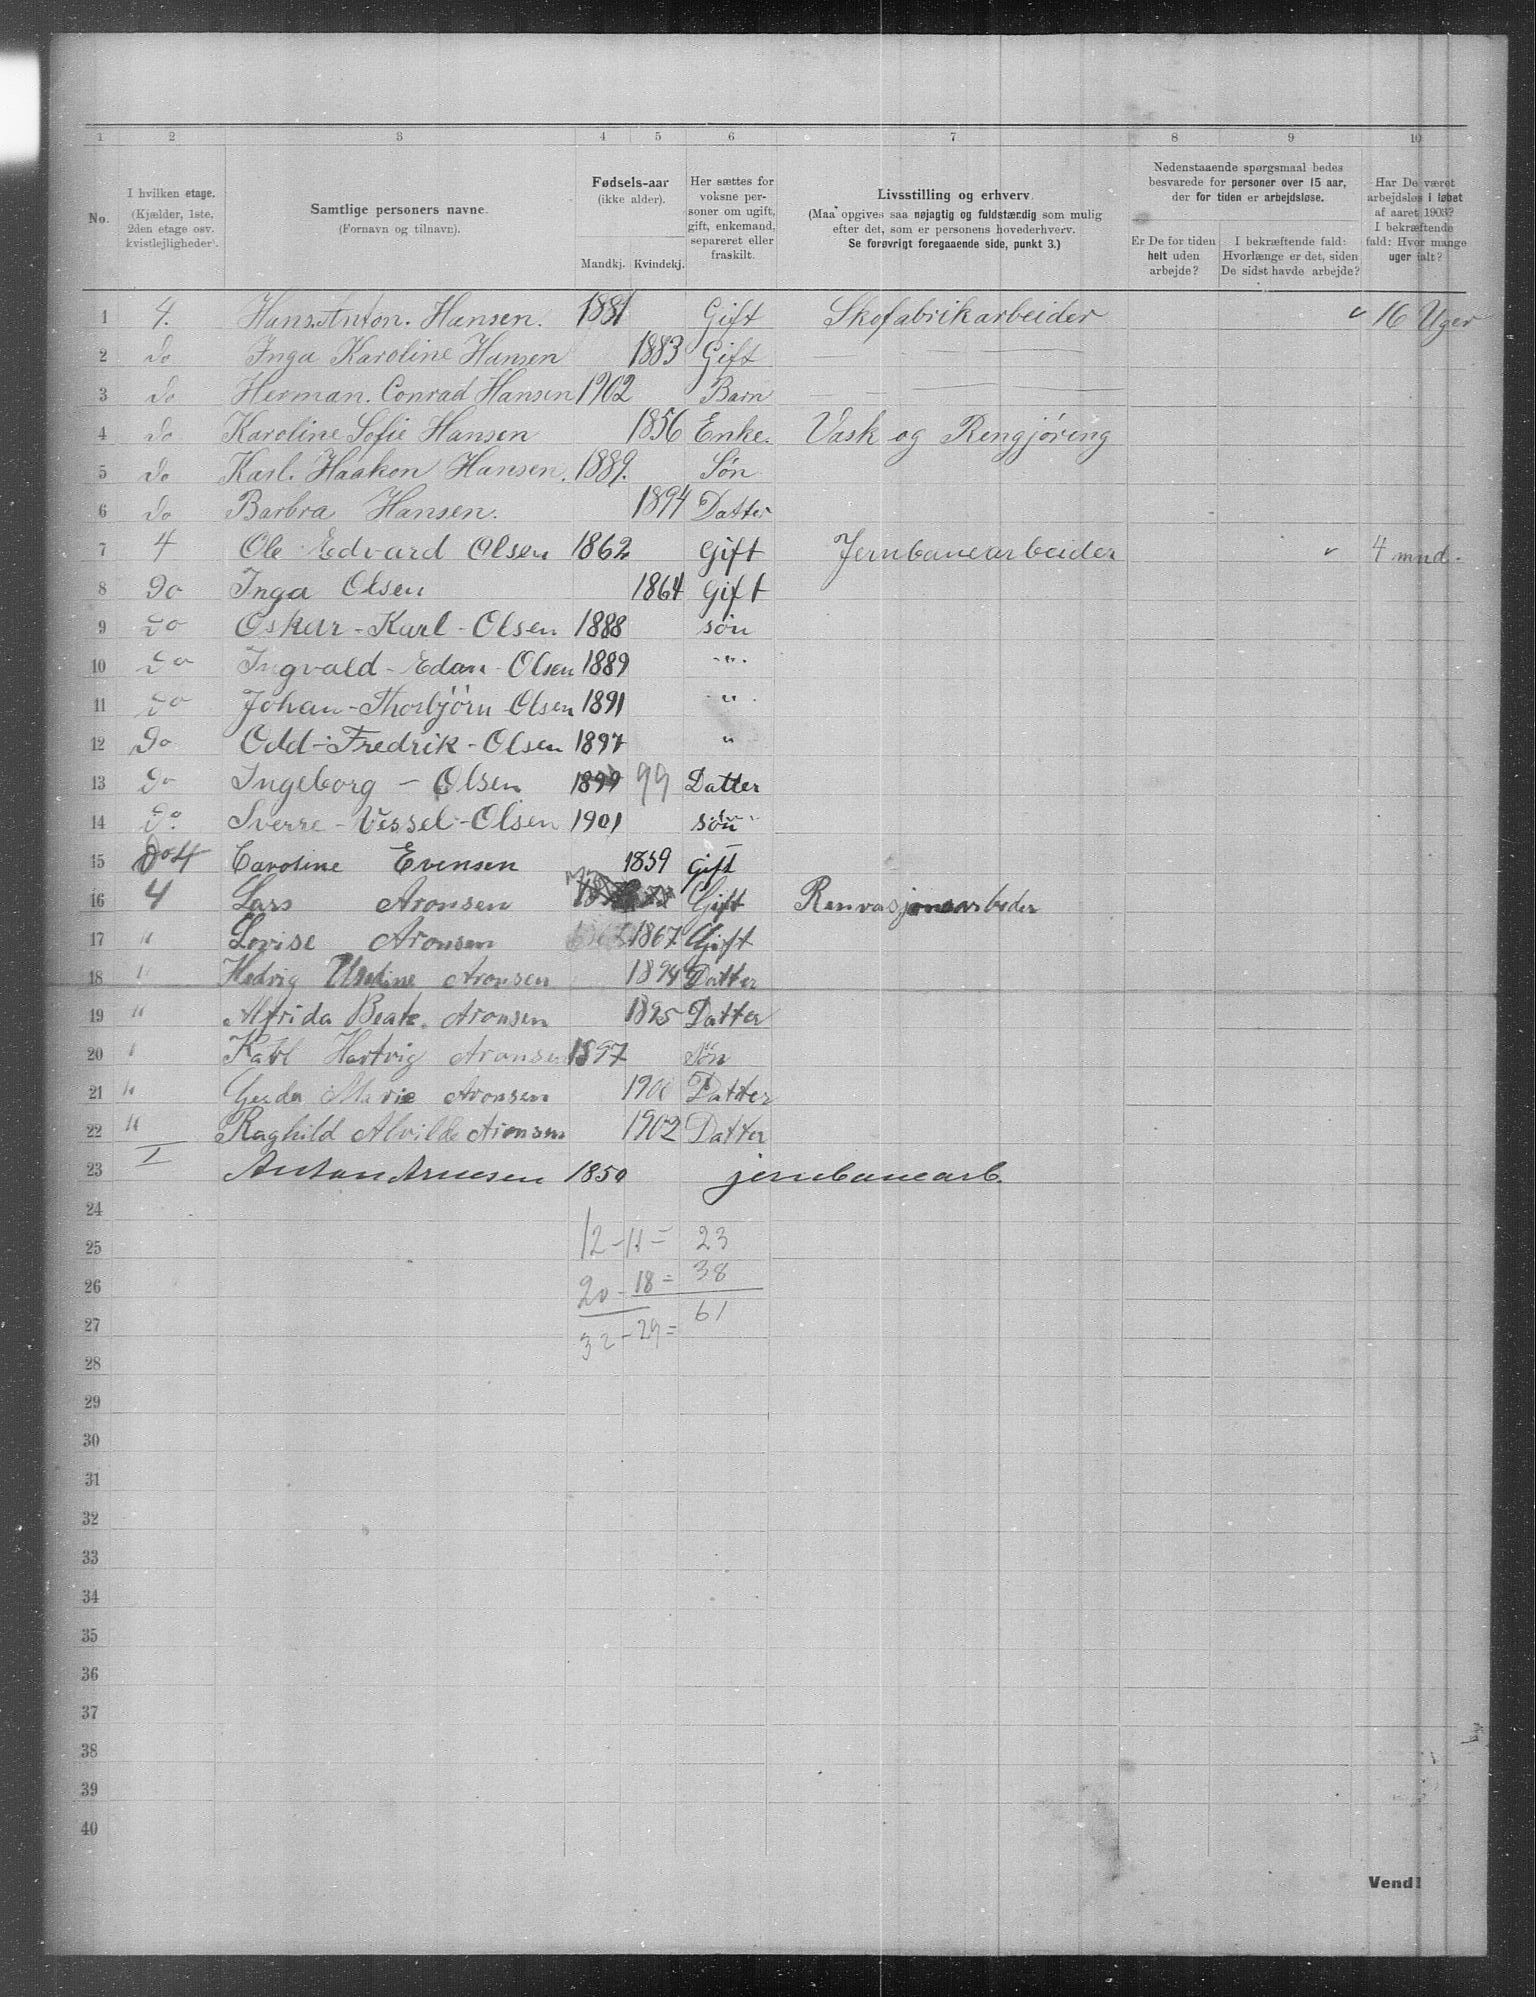 1 2 3 4 5 6 7 8 9 10
No.
I hvilken etage.
(Kjælder, 1ste, 2den etage osv. kvistlejligheder).
Samtlige personers navne.
(Fornavn og tilnavn).
Fødsels-aar
(ikke alder).
Mandkj. Kvindekj.
Her sættes for voksne personer om ugift, gift, enkemand, separeret eller fraskilt.
Livsstilling og erhverv.
(Maa opgives saa nøjagtig og fuldstændig som mulig
efter det, som er personens hovederhverv.
Se forøvrigt foregaaende side, punkt 3.)
Nedenstaaende spørgsmaal bedes
besvarede for personer over 15 aar,
der for tiden er arbejdsløse.
Er De for tiden helt uden arbejde?
I bekræftende fald: Hvorlænge er det, siden De sidst havde arbejde?
Har De været arbejdsløs i løbet af aaret 1903? I bekræftende fald: Hvor mange uger ialt?
1 4. Hans Anton. Hansen. 1881 Gift Skofabrikarbeider 16 Uger
2 do Inga Karoline Hansen 1883 Gift
3 do Herman. Conrad Hansen 1902 Barn
4 do Karoline Sofie Hansen 1856 Enke. Vask og Rengjøring
5 do Karl. Haakon Hansen. 1889. Søn
6 do Barbra Hansen. 1894 Datter
7 4 Ole Edvard Olsen 1862 Gift Jernbanearbeider 4 mnd.
8 Do Inga Olsen 1864 Gift
9 Do Oskar-Karl-Olsen 1888 søn
10 Do Ingvald-Edan-Olsen 1889 "
11 Do Johan-Thorbjörn-Olsen 1891 "
12 Do Odd-Fredrik-Olsen 1897 "
13 Do Ingeborg - Olsen 1899 99 Datter
14 Do. Sverre-Vessel-Olsen 1901 søn
15 Do 4 Caroline Evensen 1859 Gift
16 4 Lars Aronsen Gift Renvasjonsarbeder
17 " Lovise Aronsen 1867 Gift
18 " Hedvig Aronsen 1894 Datter
19 " Alfrida Beate. Aronsen 1895 Datter
20 " Karl Hartvig Aronsen 1897 Søn
21 " Gerda Marie Aronsen 1900 Datter
22 " Raghild Alvilde Aronsen 1902 Datter
23 I Anton Arnesen 1850 jernbanearb.
24
25 12-11= 23
26 20-18= 38
27 32-29= 61
28
29
30
31
32
33
34
35
36
37
38
39
40
Vend!